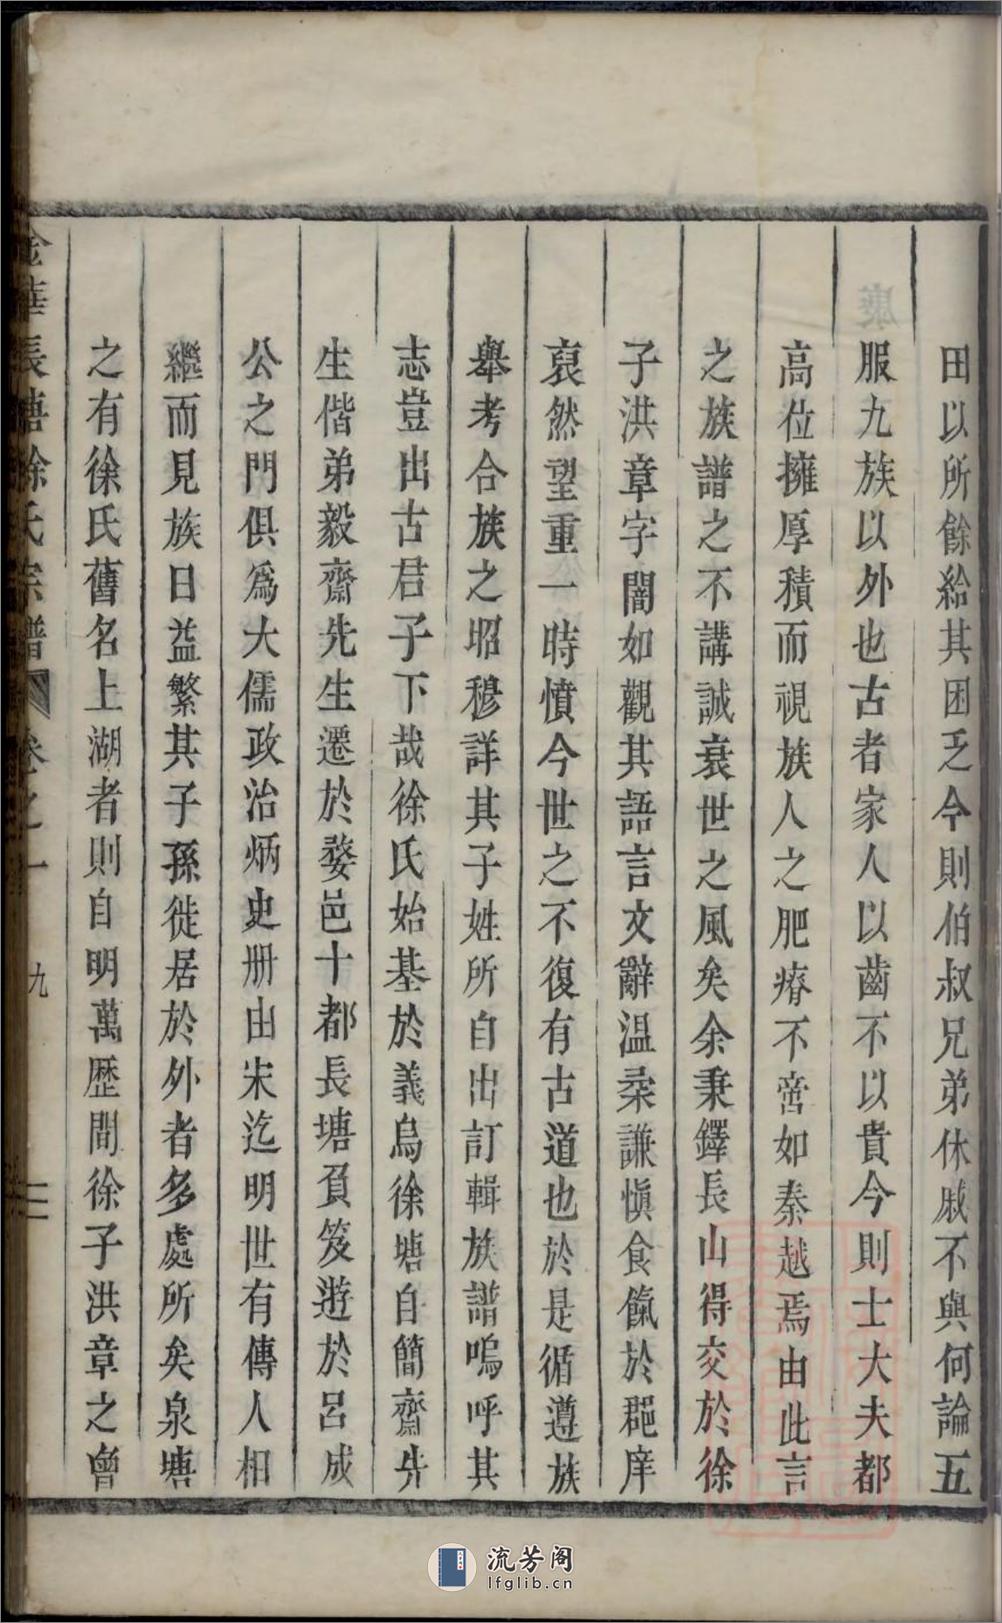 田以所餘給其困乏今則伯叔兄弟休戚不與何論五
服九族以外也古者家人以齒不以貴今則士大夫都
高位擁厚積而視族人之肥瘠不啻如秦越焉由此言
之族譜之不講誠衰世之風矣余秉鐸長山得交於徐
子洪章字闇如觀其語言文辭温柔謙慎食餼於郡庠
裒然望重一時憤今世之不復有古道也於是循遵族
舉考合族之昭穆詳其子姓所自出訂輯族譜嗚呼其
志豈出古君子下哉徐氏始基於義烏徐塘自簡齋先
生偕弟毅齋先生遷於婺邑十都長塘負笈遊於呂成
公之門俱為大儒政治炳史冊由宋迄明世有傳人相
繼而見族日益繁其子孫徙居於外者多處所矣泉塘
之有徐氏舊名上湖者則自明萬歷間徐子洪章之曾
金華長塘徐氏宗譜 卷之一 九
流芳阁
lfglib.cn